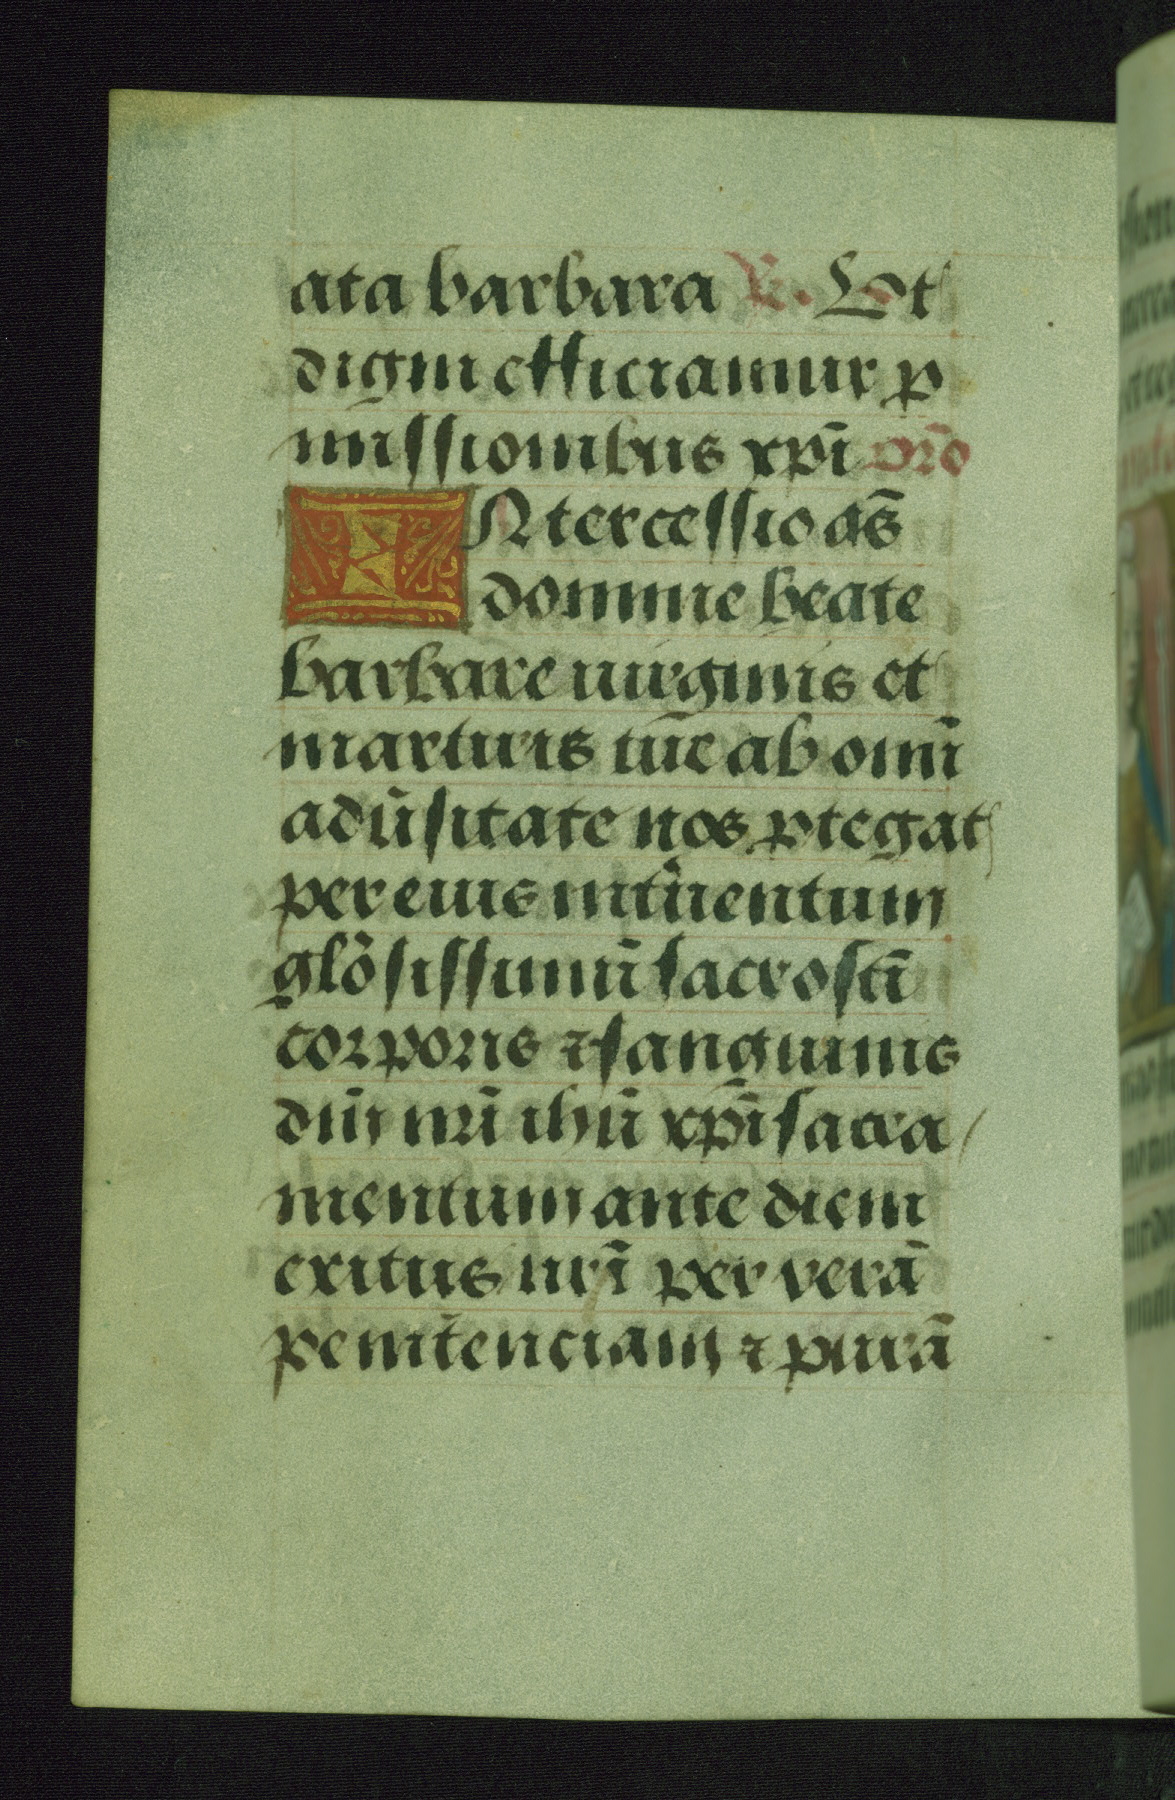 ata barbara ℟. Vt
digni efficiamur ꝓ
missionibus xp̄i or̄o
INtercessio q̄s
domine beate
barbare uirginis et
martiris tūe ab omī
adūsitate nos ꝓtegat
per eius int̄uentum
glōsissimū sacrosc̄ī
corporis ⁊ sanguinis
dn̄i nr̄i ihū xp̄i sacra
mentum ante diem
exitus nr̄i per verā
penitenciam ⁊ purā